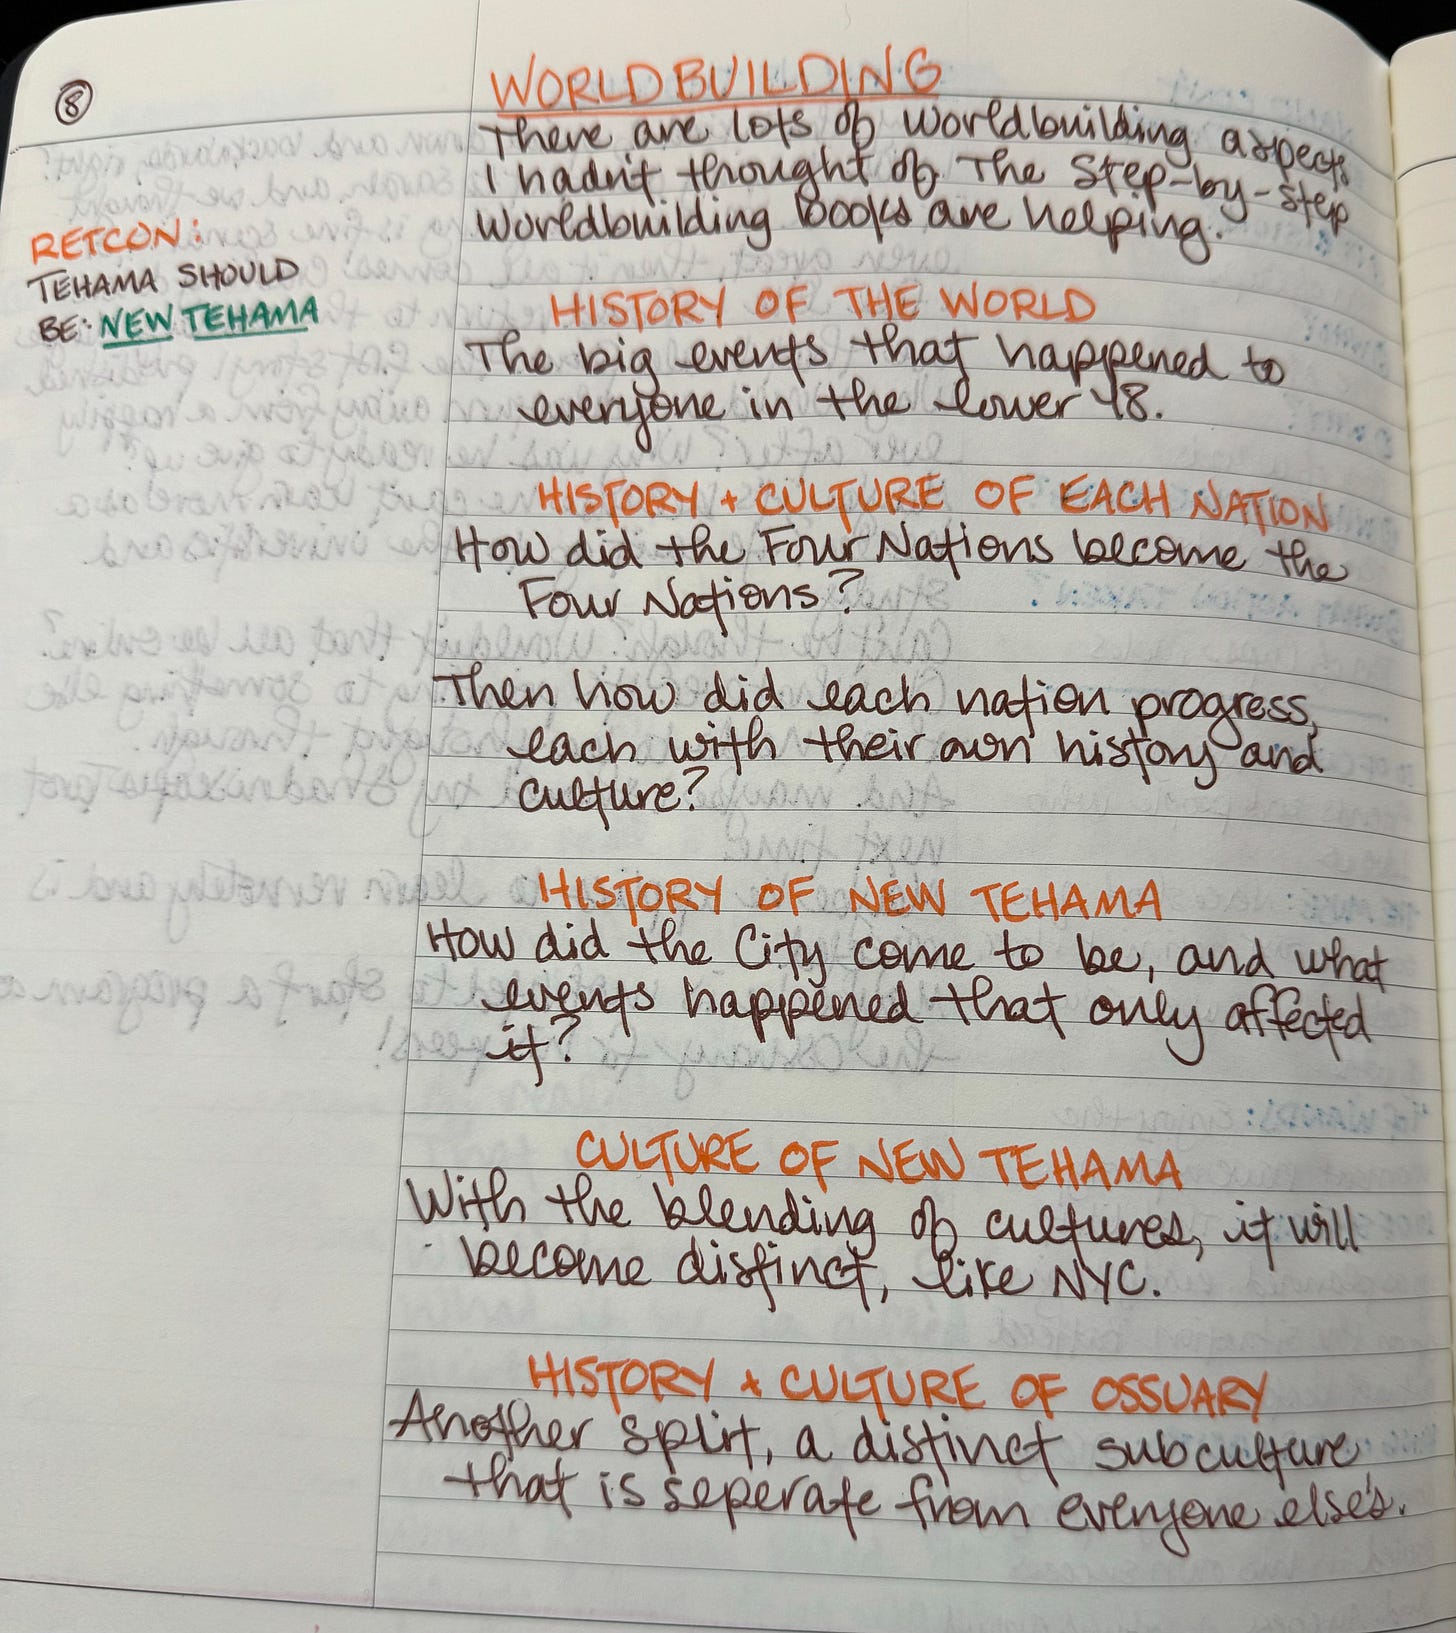 8
WORLDBUILDING
There are lots of worldbuilding aspects
I hadn't thought of. The Step-by-Step
Worldbuilding books are helping.
RETCON:
TEHAMA SHOULD
BE: NEW TEHAMA
HISTORY OF THE WORLD
The big events that happened to
everyone in the lower 48.
HISTORY + CULTURE OF EACH NATION
How did the Four Nations become the
Four Nations?
Then how did each nation progress,
each with their own history and
culture?
HISTORY OF NEW TEHAMA
How did the City come to be, and what
events happened that only affected
it?
CULTURE OF NEW TEHAMA
With the blending of cultures, it will
become distinct, like NYC.
HISTORY + CULTURE OF OSSUARY
Another split, a distinct subculture
that is seperate from everyone else's.